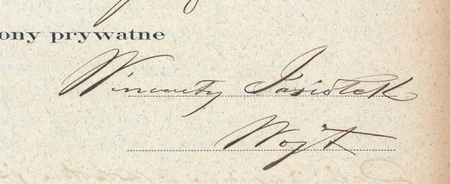 ony prywatne
Wincenty Jasiołek
Wojt